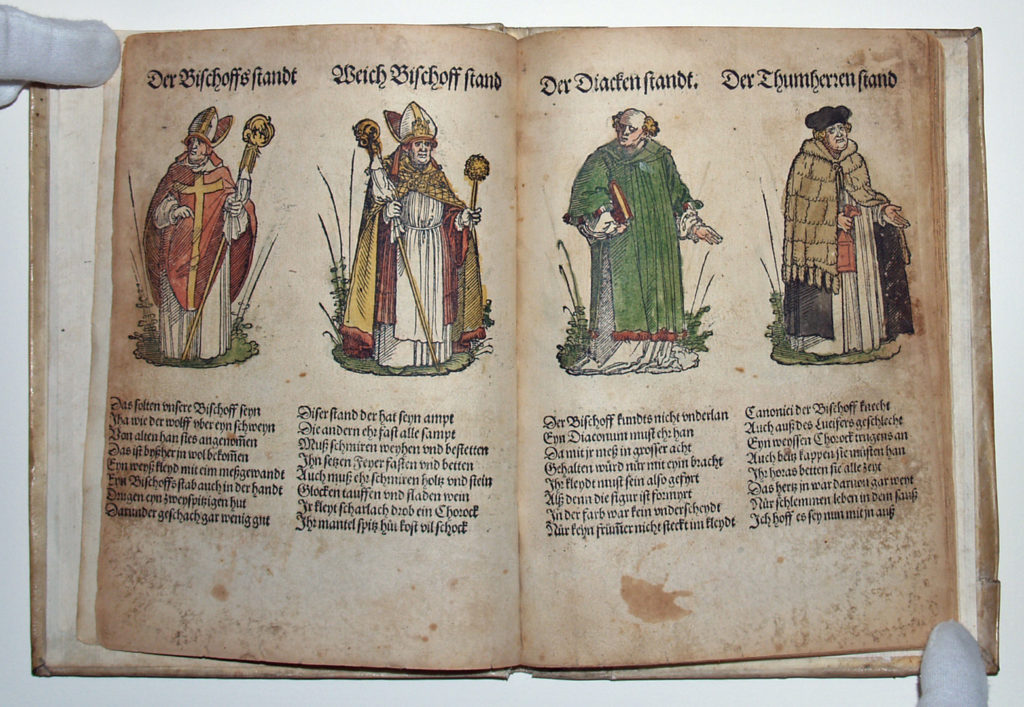 Der Bischoffs standt
Das solten vnsere Bischoff seyn
Jha wie der wolff vber eyn schweyn
Von alten han sies angenom̄en
Das ist byßher in wol bekom̄en
Eyn weyß kleyd mit eim meßgewandt
Eyn Bischoffs stab auch in der handt
Drugen eyn zweyspitzigen hut
Darunder geschach gar wenig gut
Weich Bischoff stand
Diser stand der hat seyn ampt
Die andern ehr fast alle sampt
Muß schmiren weyhen vnd bestetten
Jhn setzen Feyer fasten vnd betten
Auch muß ehr schmiren holtz vnd steln
Glocken tauffen vnd fladen wein
Jr kleyt scharlach drob ein Chorock
Jhr mantel spitz hüt kost vil schock
Der Diacken standt.
Der Bischoff kundts nicht vnderlan
Eyn Diaconum must ehr han
Da mit jr meß in grosser acht
Gehalten würd nur mit eyn bracht
Jhr kleydt must sein also gefyrt
Alß denn die figur ist formyrt
Jn der farb war kein vnderscheydt
Nür keyn frum̄er nicht steckt im kleydt
Der Thumherren stand
Canonici der Bischoff knecht
Auch auß des Lucifers geschlecht
Eyn weyssen Chorock trugens an
Auch beltz kappen sie müsten han
Jhr horas betten sie alle zeyt
Das hertz in war daruon gar weyt
Nür schlemmen leben in dem sauß
Jch hoff es sey nun mit jn auß